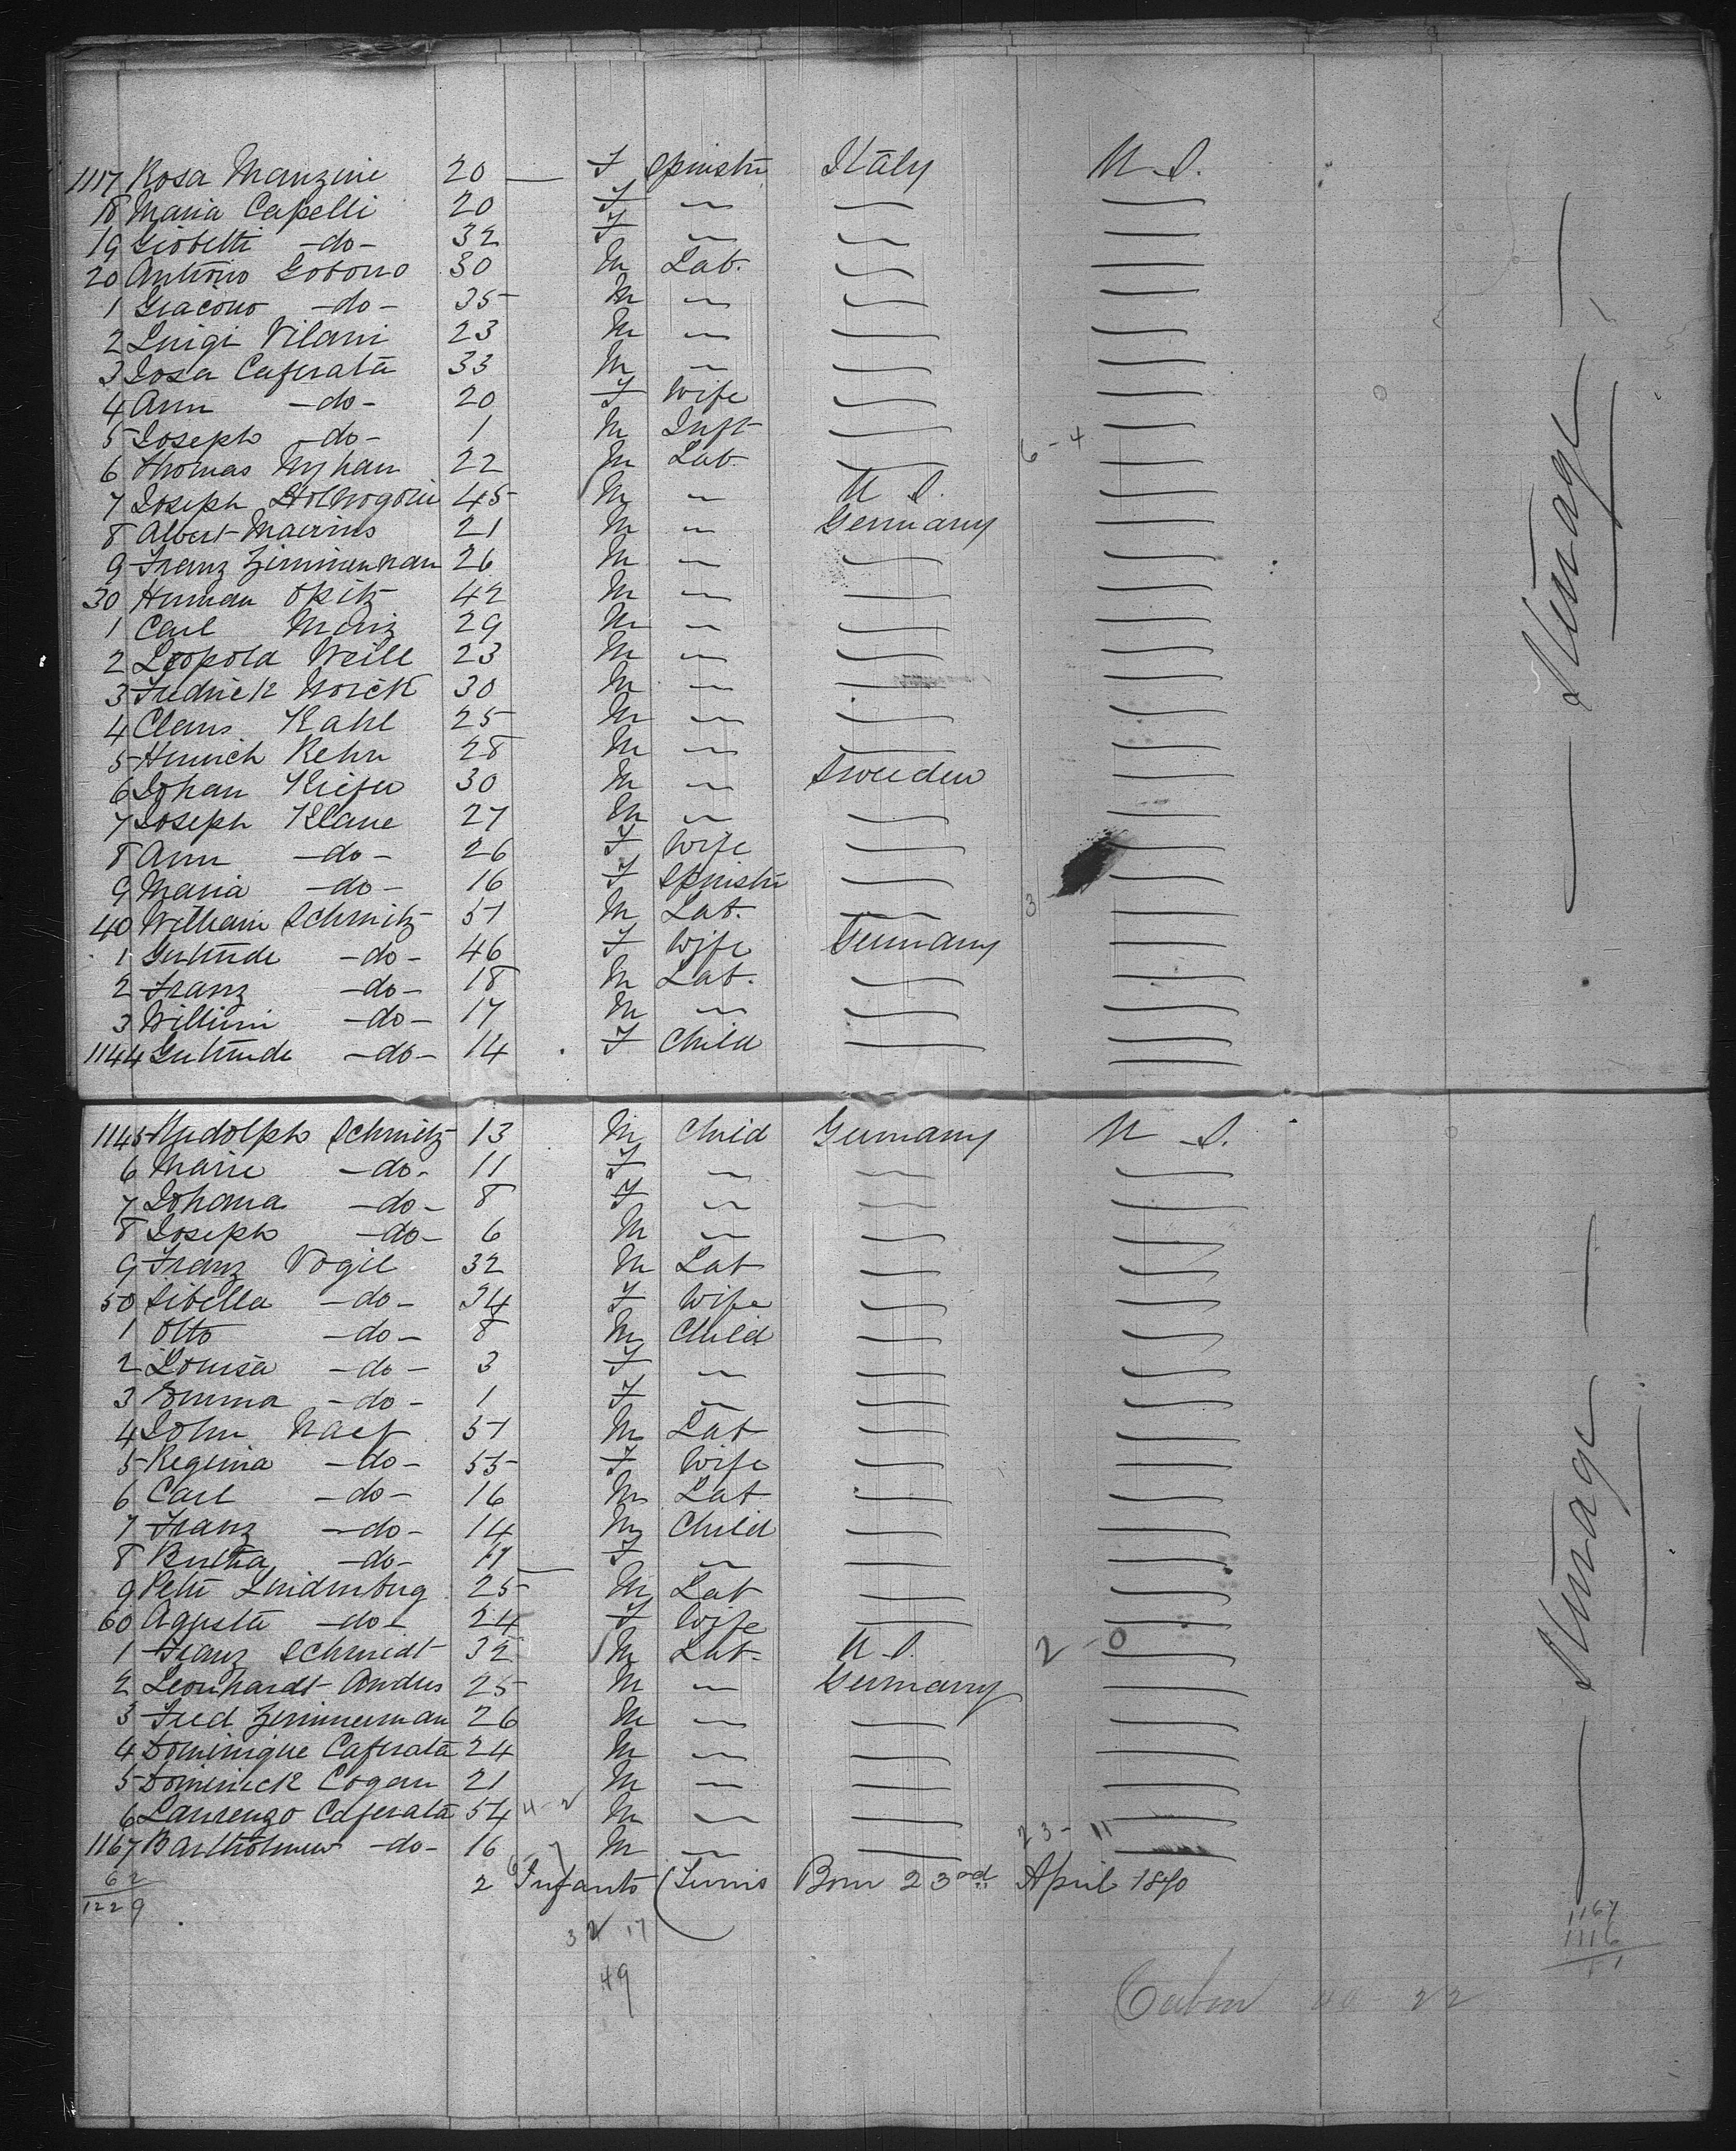 1117 Rosa Manzini 20 — F Spinstr Italy U.S.
18 Maria Capelli 20 F
19 Giobetti -do- 32 F
20 Antonio Gobono 30 M Lab.
1 Giacono -do- 35 M
2 Luigi Vilani 23 M
3 Josa Caferata 33 M
4 Ann -do- 20 F Wife
5 Joseph -do- 1 M Inft
6 Thomas Nyhan 22 M Lab. 6-4
7 Joseph 45 M U S.
8 Albert 21 M Germany
9 Franz Zimmerman 26 M
30 Herman Opitz 42 M
1 Carl 29 M
2 Leopold Weill 23 M
3 Fredrick Worck 30 M
4 Claus Kahl 25 M
5 Hinrich Rehn 28 M
6 Johan Kiefer 30 M Sweeden
7 Joseph Klane 27 M
8 Ann -do- 26 F Wife
9 Maria -do- 16 F Spinstr
40 William Schmitz 51 M Lab. 3-
1 Gertrude -do- 46 F Wife Germany
2 Franz -do- 18 M Lab.
3 Willium -do- 17 M
1144 Gertrude -do- 14 F Child
Sterage
1145 Rudolph Schmitz 13 M Child Germany U S.
6 Marie -do- 11 F
7 Johana -do- 8 F
8 Joseph -do- 6 M
9 Franz Vogil 32 M Lab
50 Sibella -do- 34 F Wife
1 Otto -do- 8 M Child
2 Louisa -do- 3 F
3 Emma -do- 1 F
4 John Naef 51 M Lab
5 Regina -do- 55 F Wife
6 Carl -do- 16 M Lab
7 Franz -do- 14 M Child
8 Bertha -do- 11 F
9 Petr Lindenburg 25 M Lab
60 Agusta -do- 24 F Wife
1 Franz Schmidt 32 M Lab U.S. 2-0
2 Leonhardt Andres 25 M Germany
3 Fred Zimmerman 26 M
4 Dominique Caferata 24 M
5 Dominick Cogan 21 M
6 Laurenzo Caferata 54 4-2 M
1167 Bartholmew -do- 16 M 23-11
62 2 Infants (Twins Born 23rd April 1870
1229
32 17
49
Sterage
1167
1116
51
Cabin 40 22